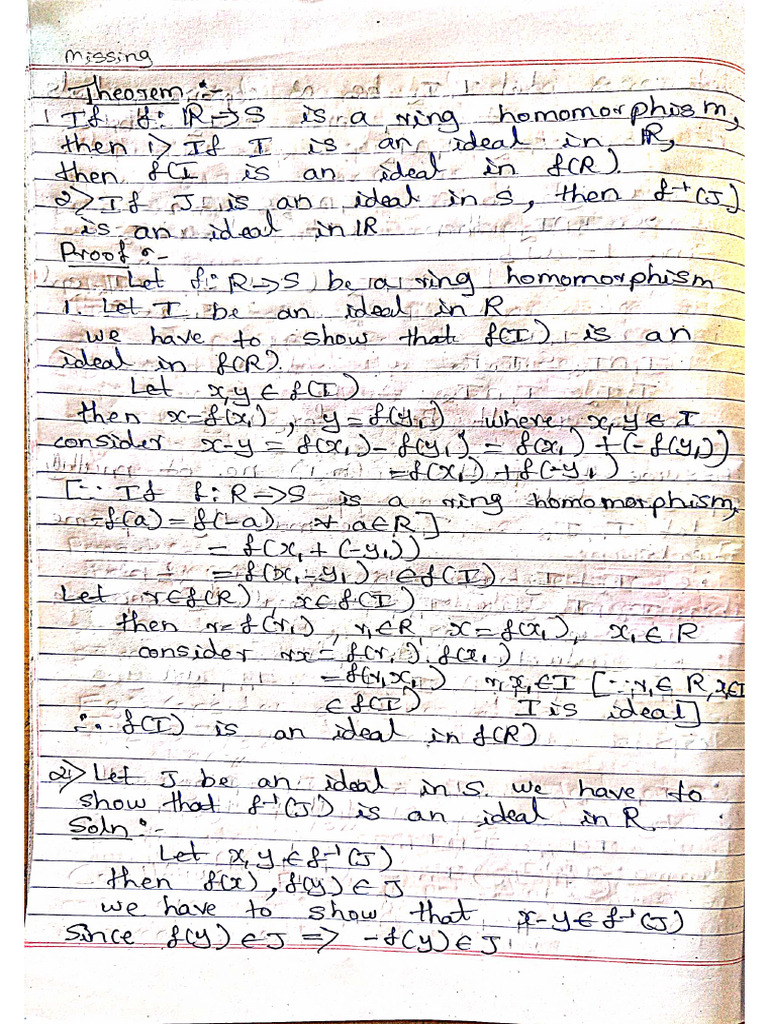 Missing
Theorem :-
1 If f: R→S is a ring homomorphism,
then 1> If I is an ideal in R,
then f(I is an ideal in f(R).
2> If J is an ideal in S, then f⁻¹(J)
is an ideal in R
Proof :-
Let f: R→S be a ring homomorphism
1. Let I be an ideal in R
we have to show that f(I) is an
ideal in f(R).
Let x,y ∈ f(I)
then x=f(x₁), y=f(y₁) where x₁,y ∈ I
consider x-y = f(x₁)-f(y₁) = f(x₁)+(-f(y₁))
=f(x₁)+f(-y₁)
[∵ If f: R→S is a ring homomorphism,
-f(a)=f(-a) ∀ a∈R]
= f(x₁+(-y₁))
= f(x₁-y₁) ∈ f(I)
Let r∈f(R), x∈f(I)
then r=f(r₁), r₁∈R, x=f(x₁), x₁∈R
consider rx = f(r₁).f(x₁)
=f(r₁x₁) r₁x₁∈I [∵r₁∈R, x∈I
∈ f(I) I is ideal]
∴ f(I) is an ideal in f(R)
2> Let J be an ideal in S. we have to
show that f⁻¹(J) is an ideal in R.
Soln :-
Let x,y ∈ f⁻¹(J)
then f(x), f(y) ∈ J
we have to show that x-y∈f⁻¹(J)
since f(y)∈J => -f(y)∈J